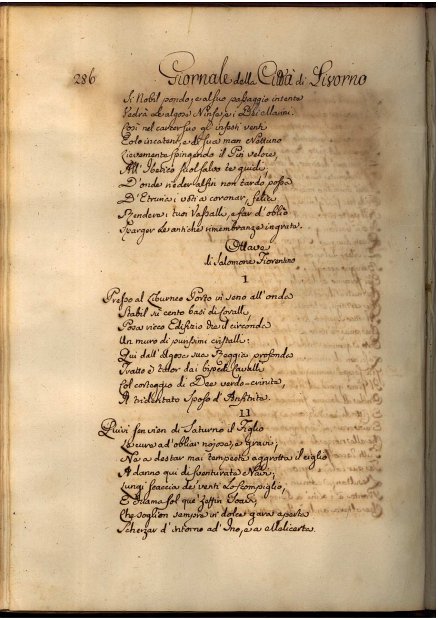 286 Giornale della Città di Livorno
Si Nobil pondo; e al suo passaggio intente
Vedrà le algose Ninfe, e i Dei Marini.
Così nel carcer suo gl' infesti venti
Eolo incateni, e di sua man Nettuno
Lievemente spingendo il Pin veloce,
All' Iberico suol salvo te guidi,
D'onde rieder alfin non tardo possa
D'Etruria i voti a coronar, felice
Rendere i tuoi Vassalli, e far d'oblio
Sparger le antiche rimembranze ingrate.
Ottave
di Salomone Fiorentino
I
Presso al Liburneo Porto vi sono all'onda
Stabil su cento basi di Coralli
Posa ricco Edifizio che il circonda
Un muro di purissimi cristalli:
Qui dall'Algosa sua Reggia profonda
Tratto è talor dai bipedi Cavalli
Col corteggio di Dee verdo-crinite,
Il tridentato Sposo d'Anfitrite.
II
Quivi sen vien di Saturno il Figlio
Le cure ad'obliar nojose, e gravi;
Ne a destar mai tempeste aggrotta il ciglio
A danno qui di sventurate Navi;
Lungi scaccia dei venti lo scompiglio,
E chiama sol que' Zeffiri soavi,
Che soglion sempre in dolce gara aperta
Scherzar d'intorno ad' Ino, e a Melicerta.